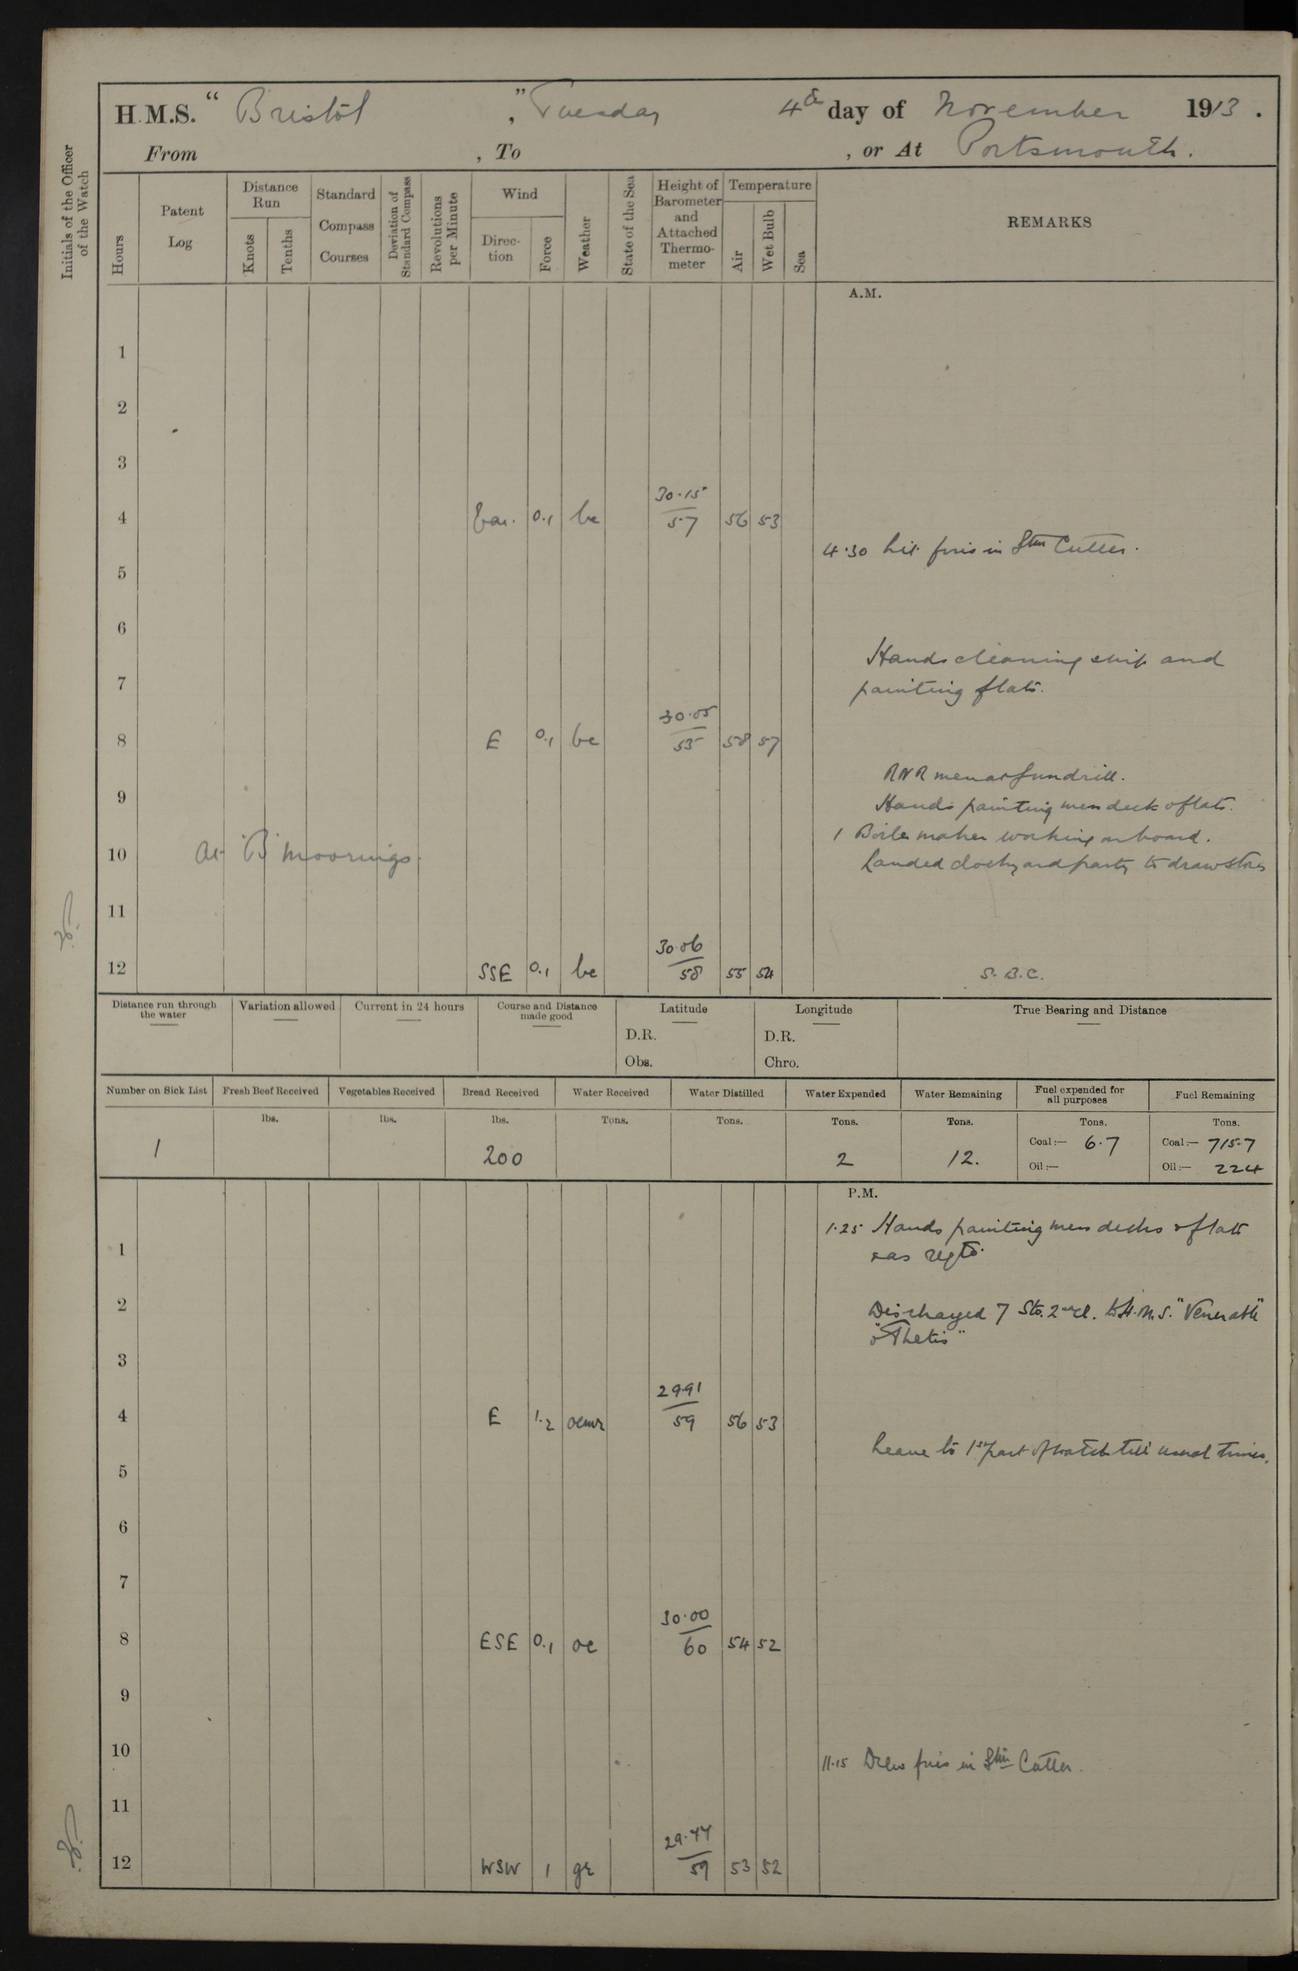 H.M.S. " Bristol ", Tuesday 4th day of November 1913.
From , To , or At Portsmouth.
Initials of the Officer of the Watch
Hours
Patent Log
Distance Run
Knots
Tenths
Standard Compass Courses
Deviation of Standard Compass
Revolutions per Minute
Wind
Direction
Force
Weather
State of the Sea
Height of Barometer and Attached Thermometer
Temperature
Air
Wet Bulb
Sea
REMARKS
A.M.
1
2
3
4 Var. 0.1 bc 30.15 57 56 53
4.30 Lit fires in Stm Cutter.
5
6
Hands cleaning ship and
7
painting flats.
8 E 0.1 bc 30.05 55 58 57
RNR men at gun drill.
9
Hands painting mess deck & flats.
1 Boiler maker working on board.
10 At 'B' moorings.
Landed dockyard party to draw stores
11
12 SSE 0.1 bc 30.06 58 55 54
S.B.C.
Distance run through the water
Variation allowed
Current in 24 hours
Course and Distance made good
Latitude
D.R.
Obs.
Longitude
D.R.
Chro.
True Bearing and Distance
Number on Sick List
Fresh Beef Received
Vegetables Received
Bread Received
Water Received
Water Distilled
Water Expended
Water Remaining
Fuel expended for all purposes
Fuel Remaining
lbs. lbs. lbs. Tons. Tons. Tons. Tons. Tons. Tons.
1 200 2 12.
Coal:— 6.7 Coal:— 715.7
Oil:— Oil:— 224
P.M.
1.25 Hands painting mess decks & flats
1
& as reqte.
2
Discharged 7 Sto. 2nd cl. to H.M.S. "Venerable"
& "Thetis"
3
4 E 1.2 29.91 59 56 53
Leave to 1st part of watch till usual times.
5
6
7
8 ESE 0.1 oc 30.00 60 54 52
9
10
11.15 Drew fires in Stm Cutter.
11
12 WSW 1 59 53 52